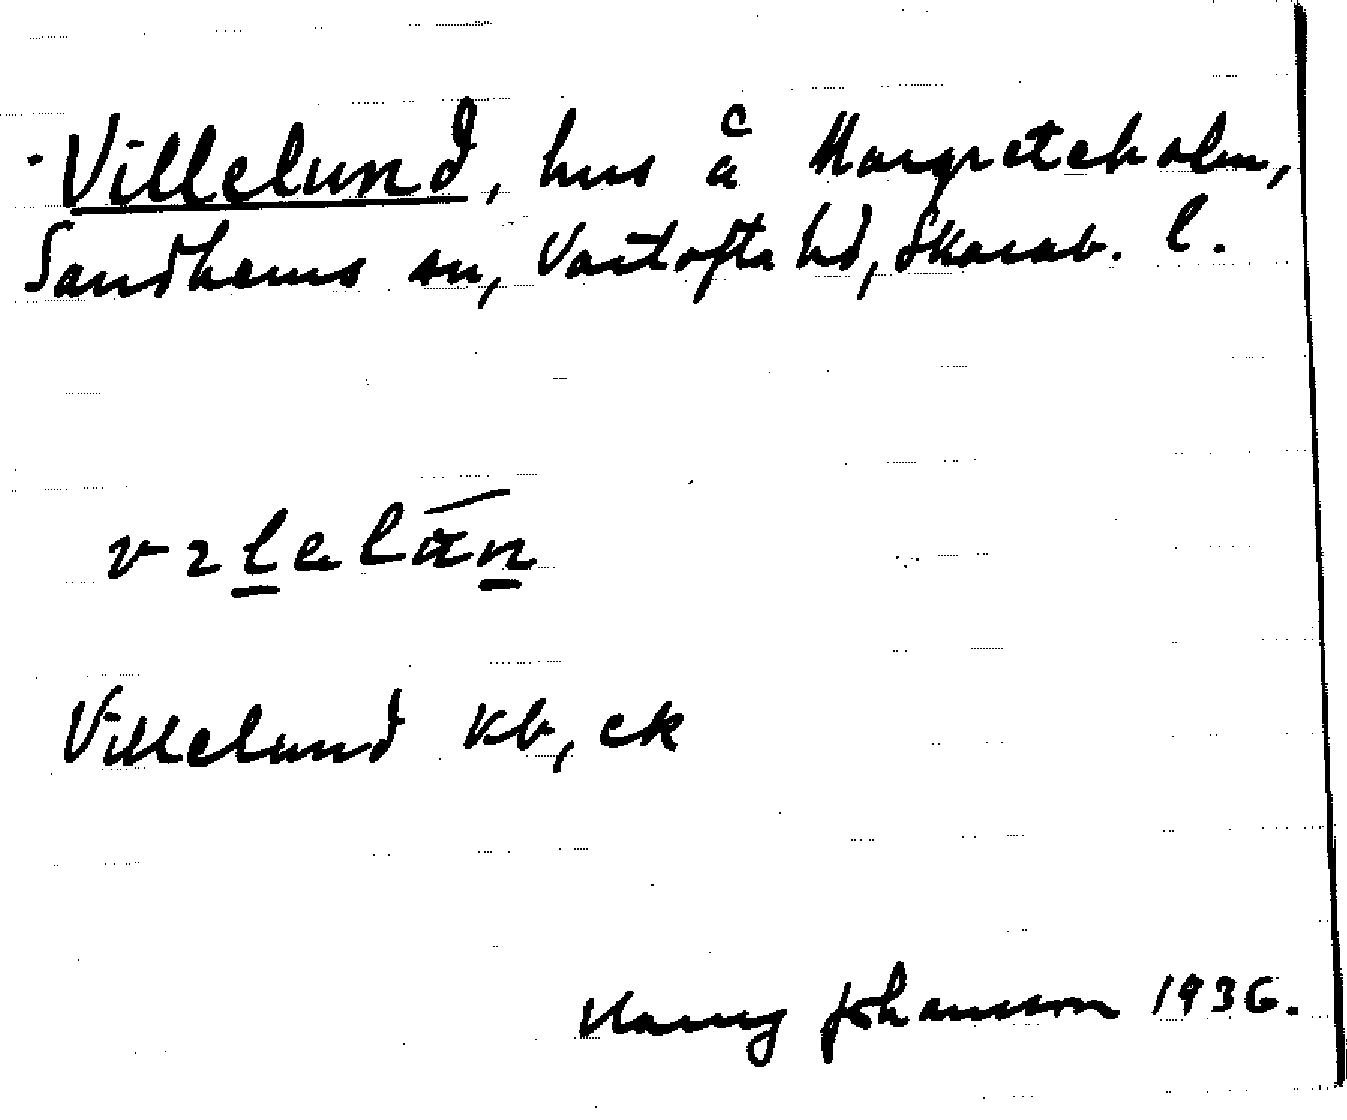 Villelund, hus å Margreteholm,
Sandhems sn, Vartofta hd, Skarab. l.
Villelund kb, ek
Harry Johansson 1936.